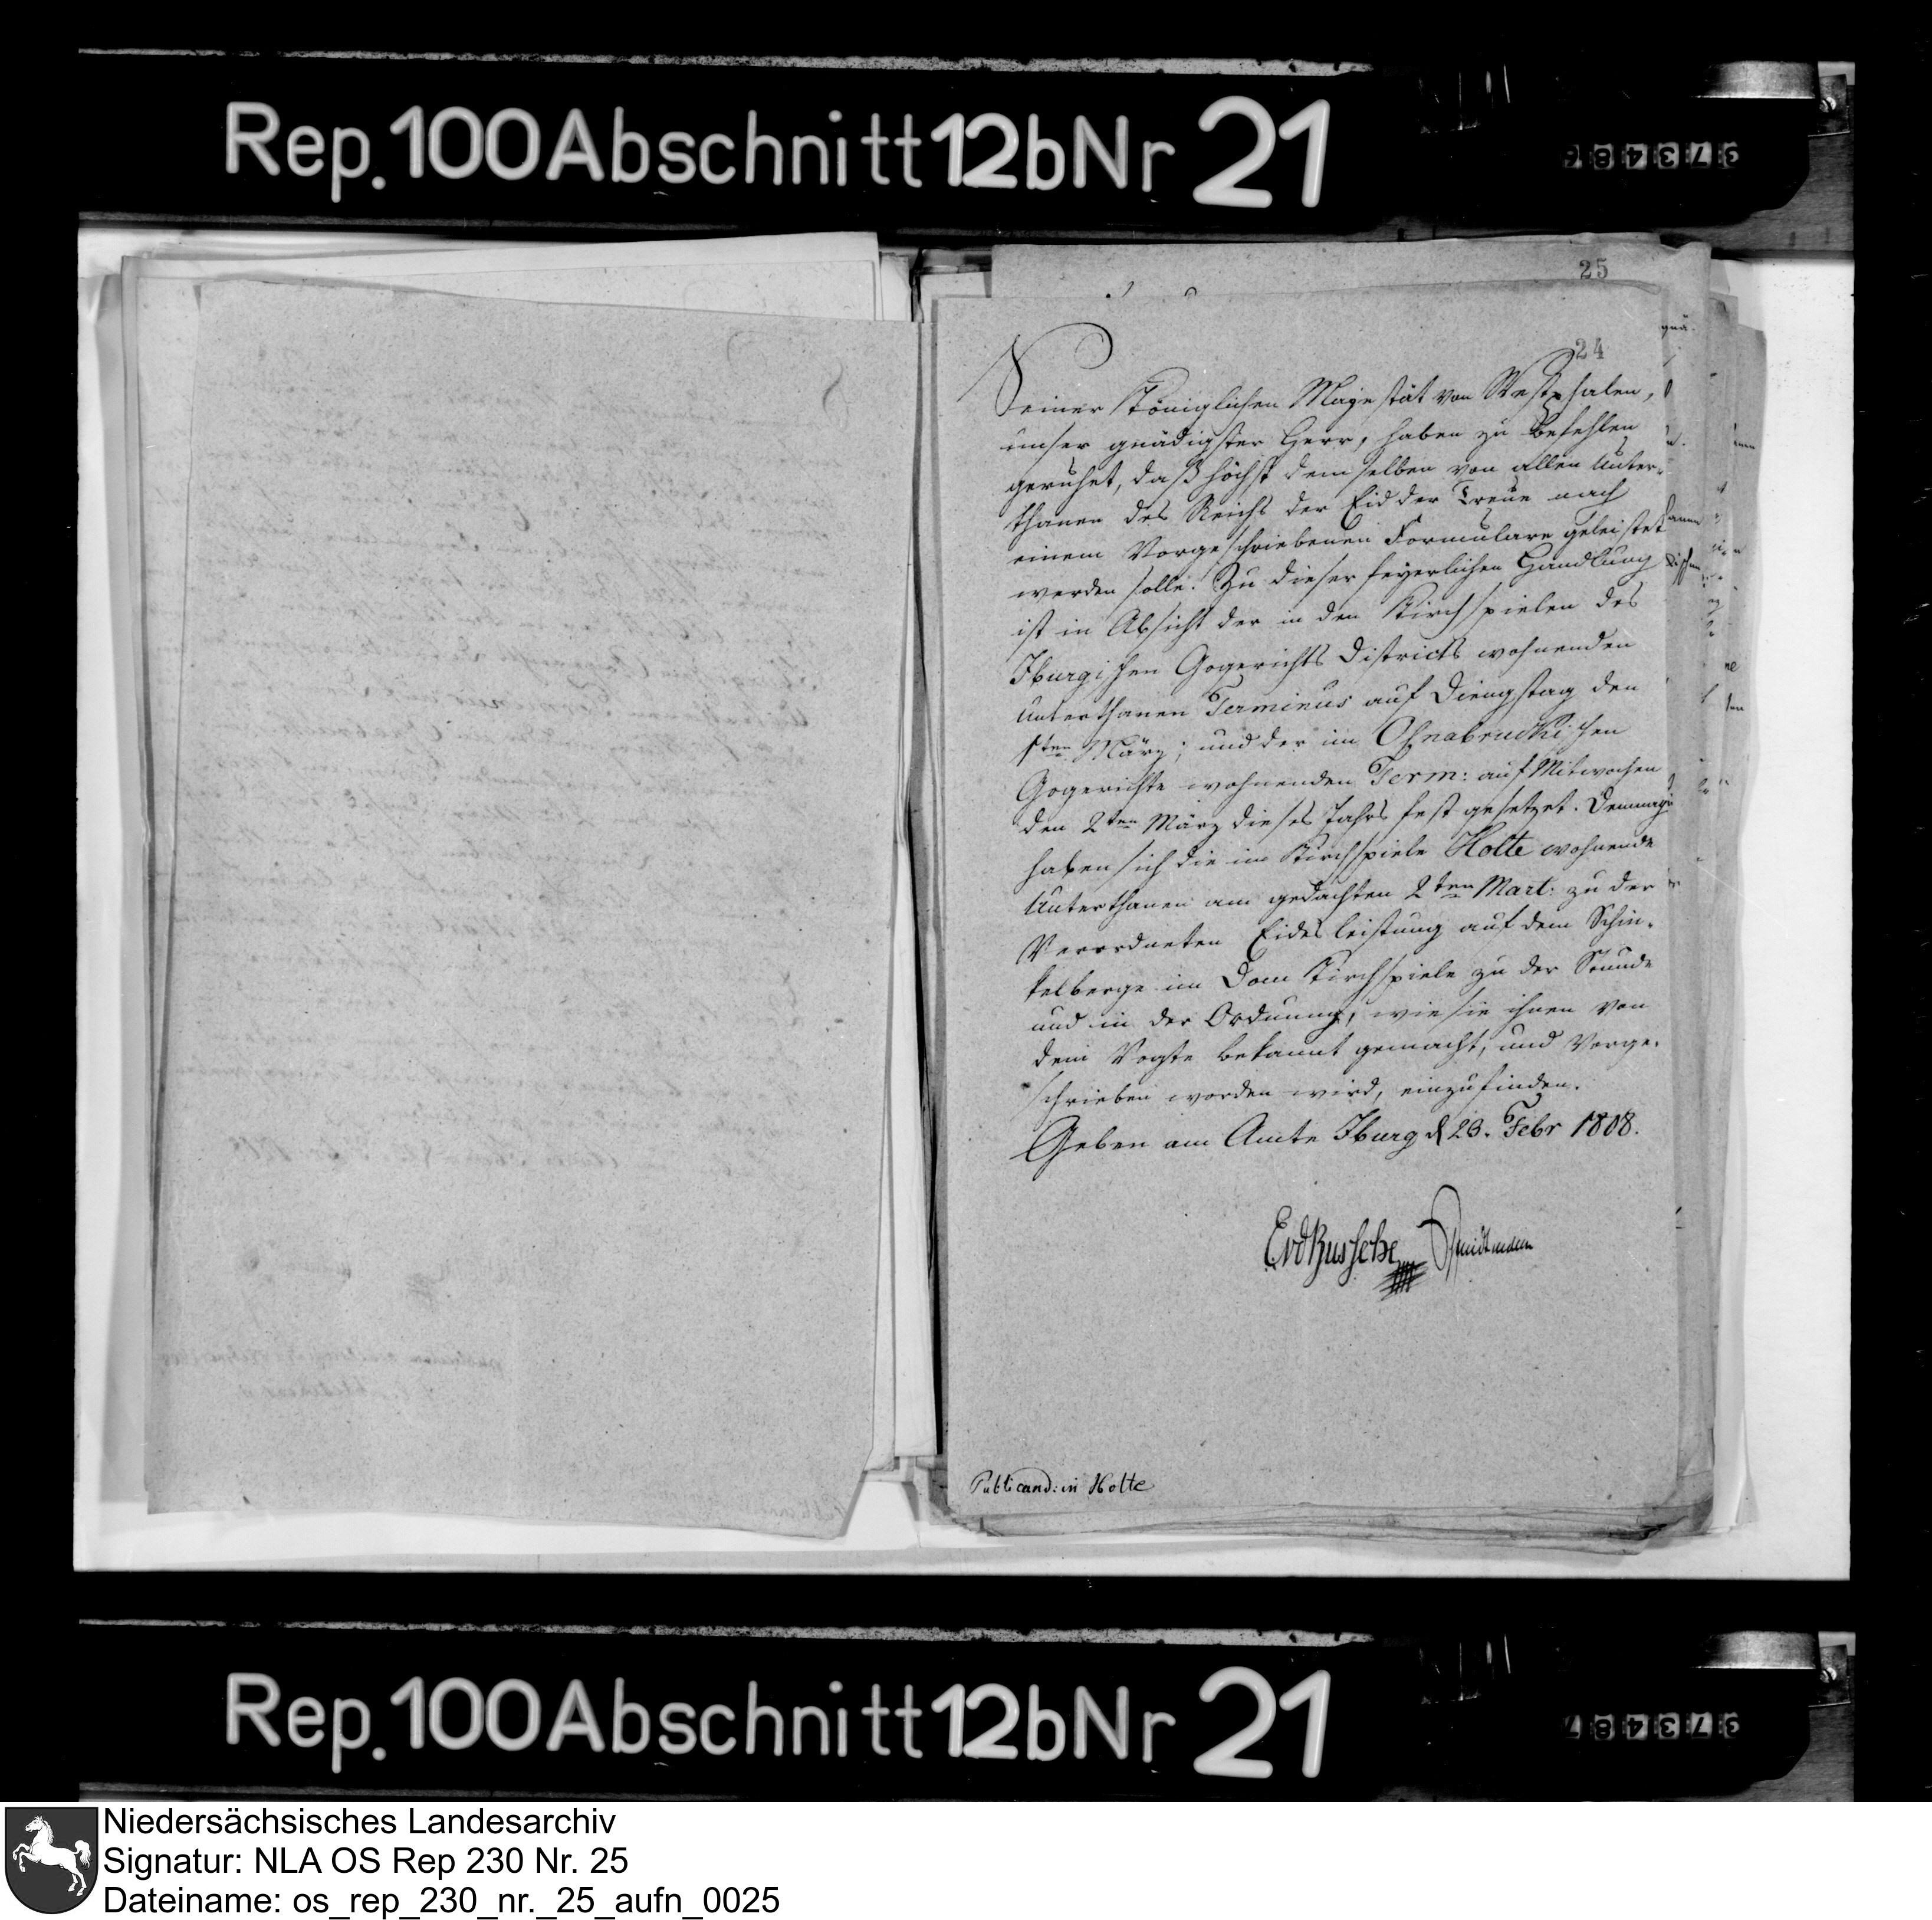 Rep. 100 Abschnitt 12b Nr 21
25
24
Seiner Königlichen Majestät von Westphalen,
unser gnädigster Herr, haben zu befehlen
geruhet, daß höchst demselben von allen Unter-
thanen des Reichs der Eid der Treue nach
einem Vorgeschriebenen Formulare geleistet
werden solle. Zu dieser feyerlichen Handlung
ist in Absicht der in den Kirchspielen des
Iburgischen Gogerichts Districts wohnenden
Unterthanen Terminus auf Diengstag den
1ten März; und der im Osnabruckischen
Gogerichte wohnenden Term: auf Mitwochen
den 2ten März dieses Jahrs fest gesetzet. Demnach
haben sich die im Kirchspiele Holte wohnende
Unterthanen am gedachten 2ten Mart: zu der
Verordneten Eidesleistung auf dem Schin-
kelberge im Dom Kirchspiele zu der Stunde
und in der Ordnung, wie sie ihnen von
dem Vogte bekannt gemacht, und Vorge-
schrieben werden wird, einzufinden.
Geben am Amte Iburg d 23. Febr 1808.
EvdBussche
Publicand: in Holte
Rep. 100 Abschnitt 12b Nr 21
Niedersächsisches Landesarchiv
Signatur: NLA OS Rep 230 Nr. 25
Dateiname: os_rep_230_nr._25_aufn_0025